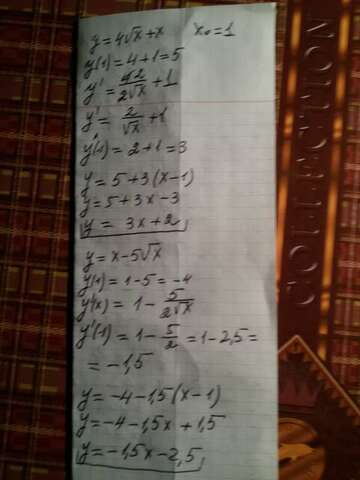 y=4√x+x x₀=1
y(1)=4+1=5
y'=42/2√x+1
y'=2/√x+1
y'(1)=2+1=3
y=5+3(x-1)
y=5+3x-3
y=3x+2
y=x-5√x
y(1)=1-5=-4
y'(x)=1-5/2√x
y'(1)=1-5/2=1-2,5=
=-1,5
y=-4-1,5(x-1)
y=-4-1,5x+1,5
y=-1,5x-2,5